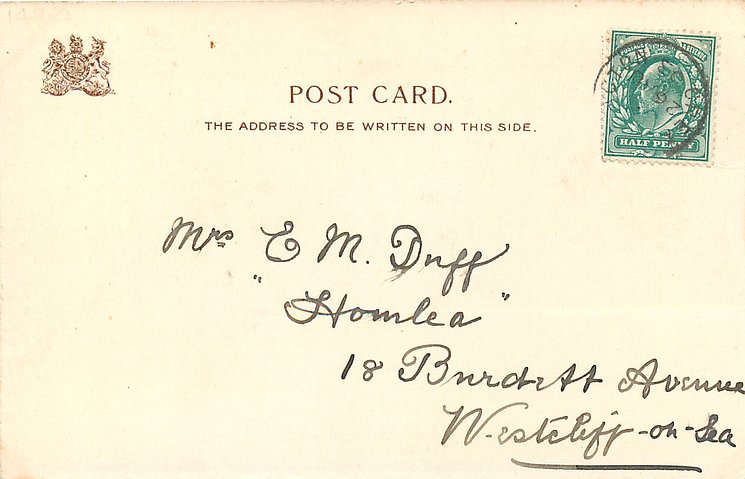 POST CARD.
THE ADDRESS TO BE WRITTEN ON THIS SIDE.
POSTAGE & REVENUE
HALF PENNY
Mrs E M. Duff
"Homlea"
18 Burdett Avenue
Westcliff-on-Sea